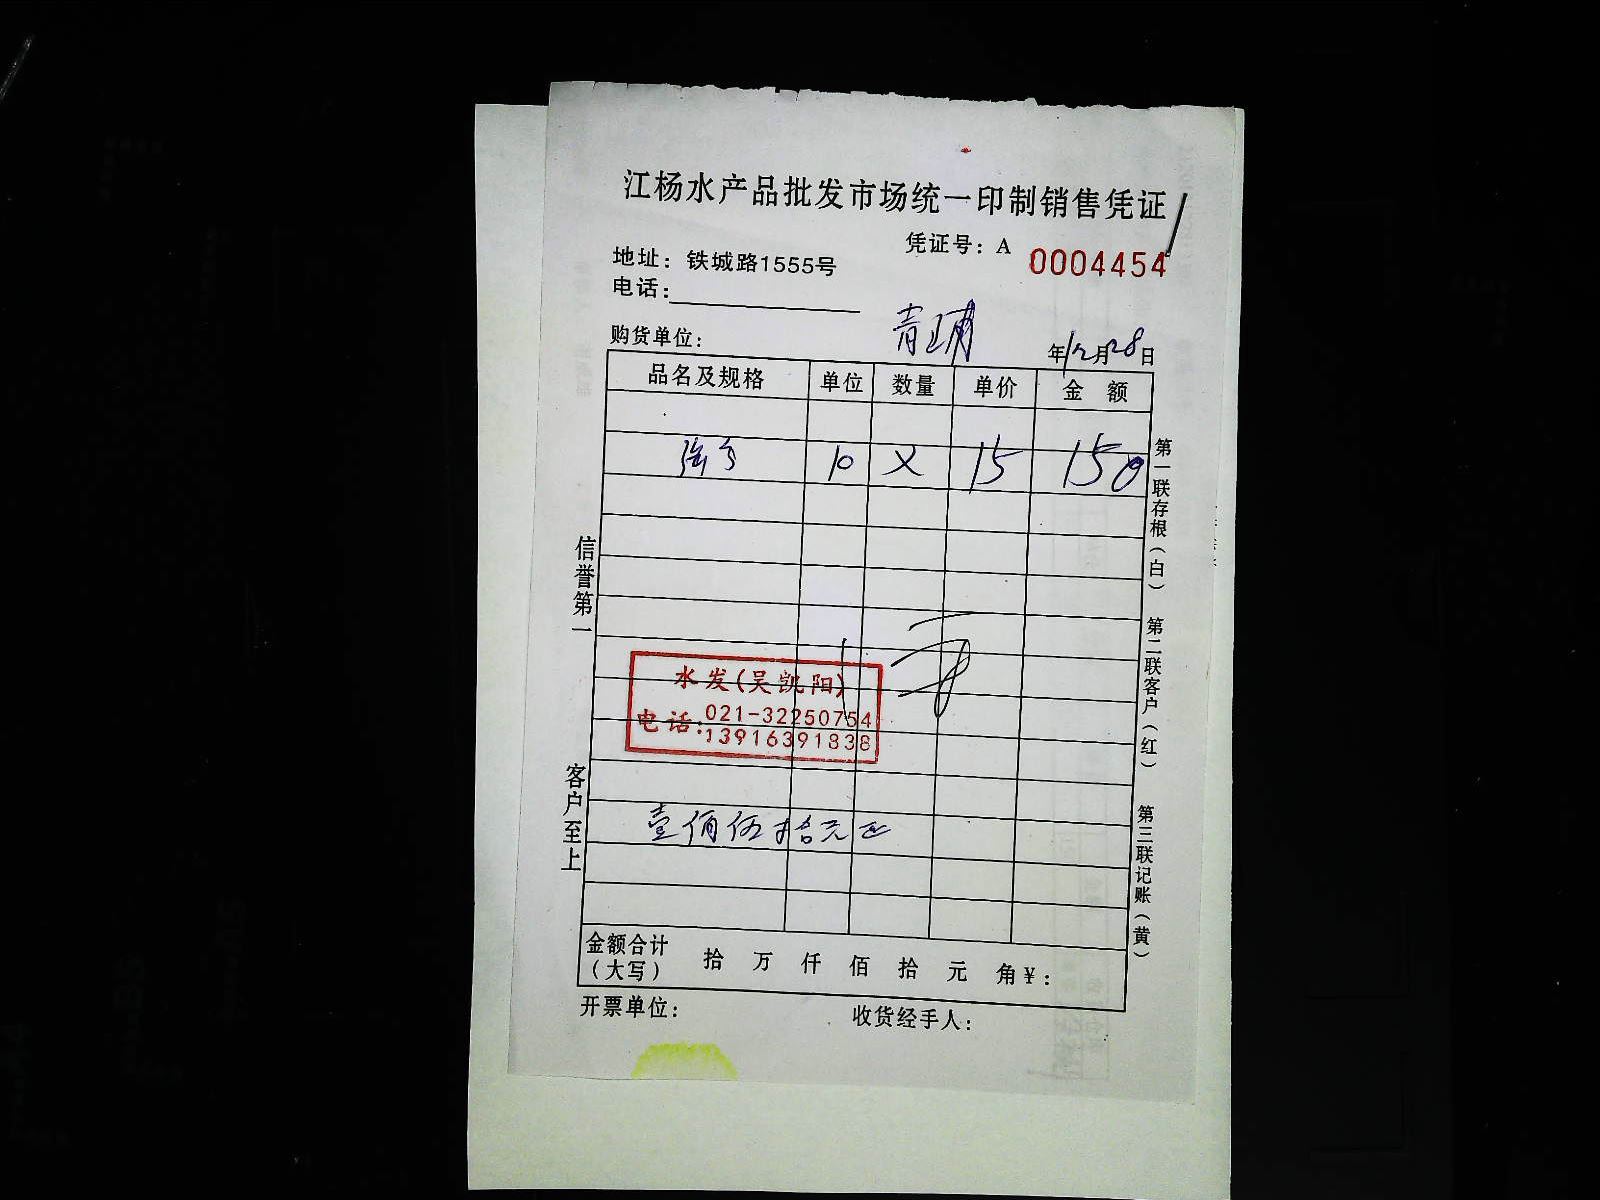 江杨水产品批发市场统一印制销售凭证
凭证号：A 0004454
地址：铁城路1555号
电话：
购货单位：
年12月28日
品名及规格 单位 数量 单价 金 额
10 X 15 150
信誉第一
客户至上
水发(吴凯阳)
电话：021-32250754
13916391838
壹佰伍拾元正
金额合计（大写） 拾 万 仟 佰 拾 元 角 ¥：
开票单位： 收货经手人：
第一联存根（白） 第二联客户（红） 第三联记账（黄）